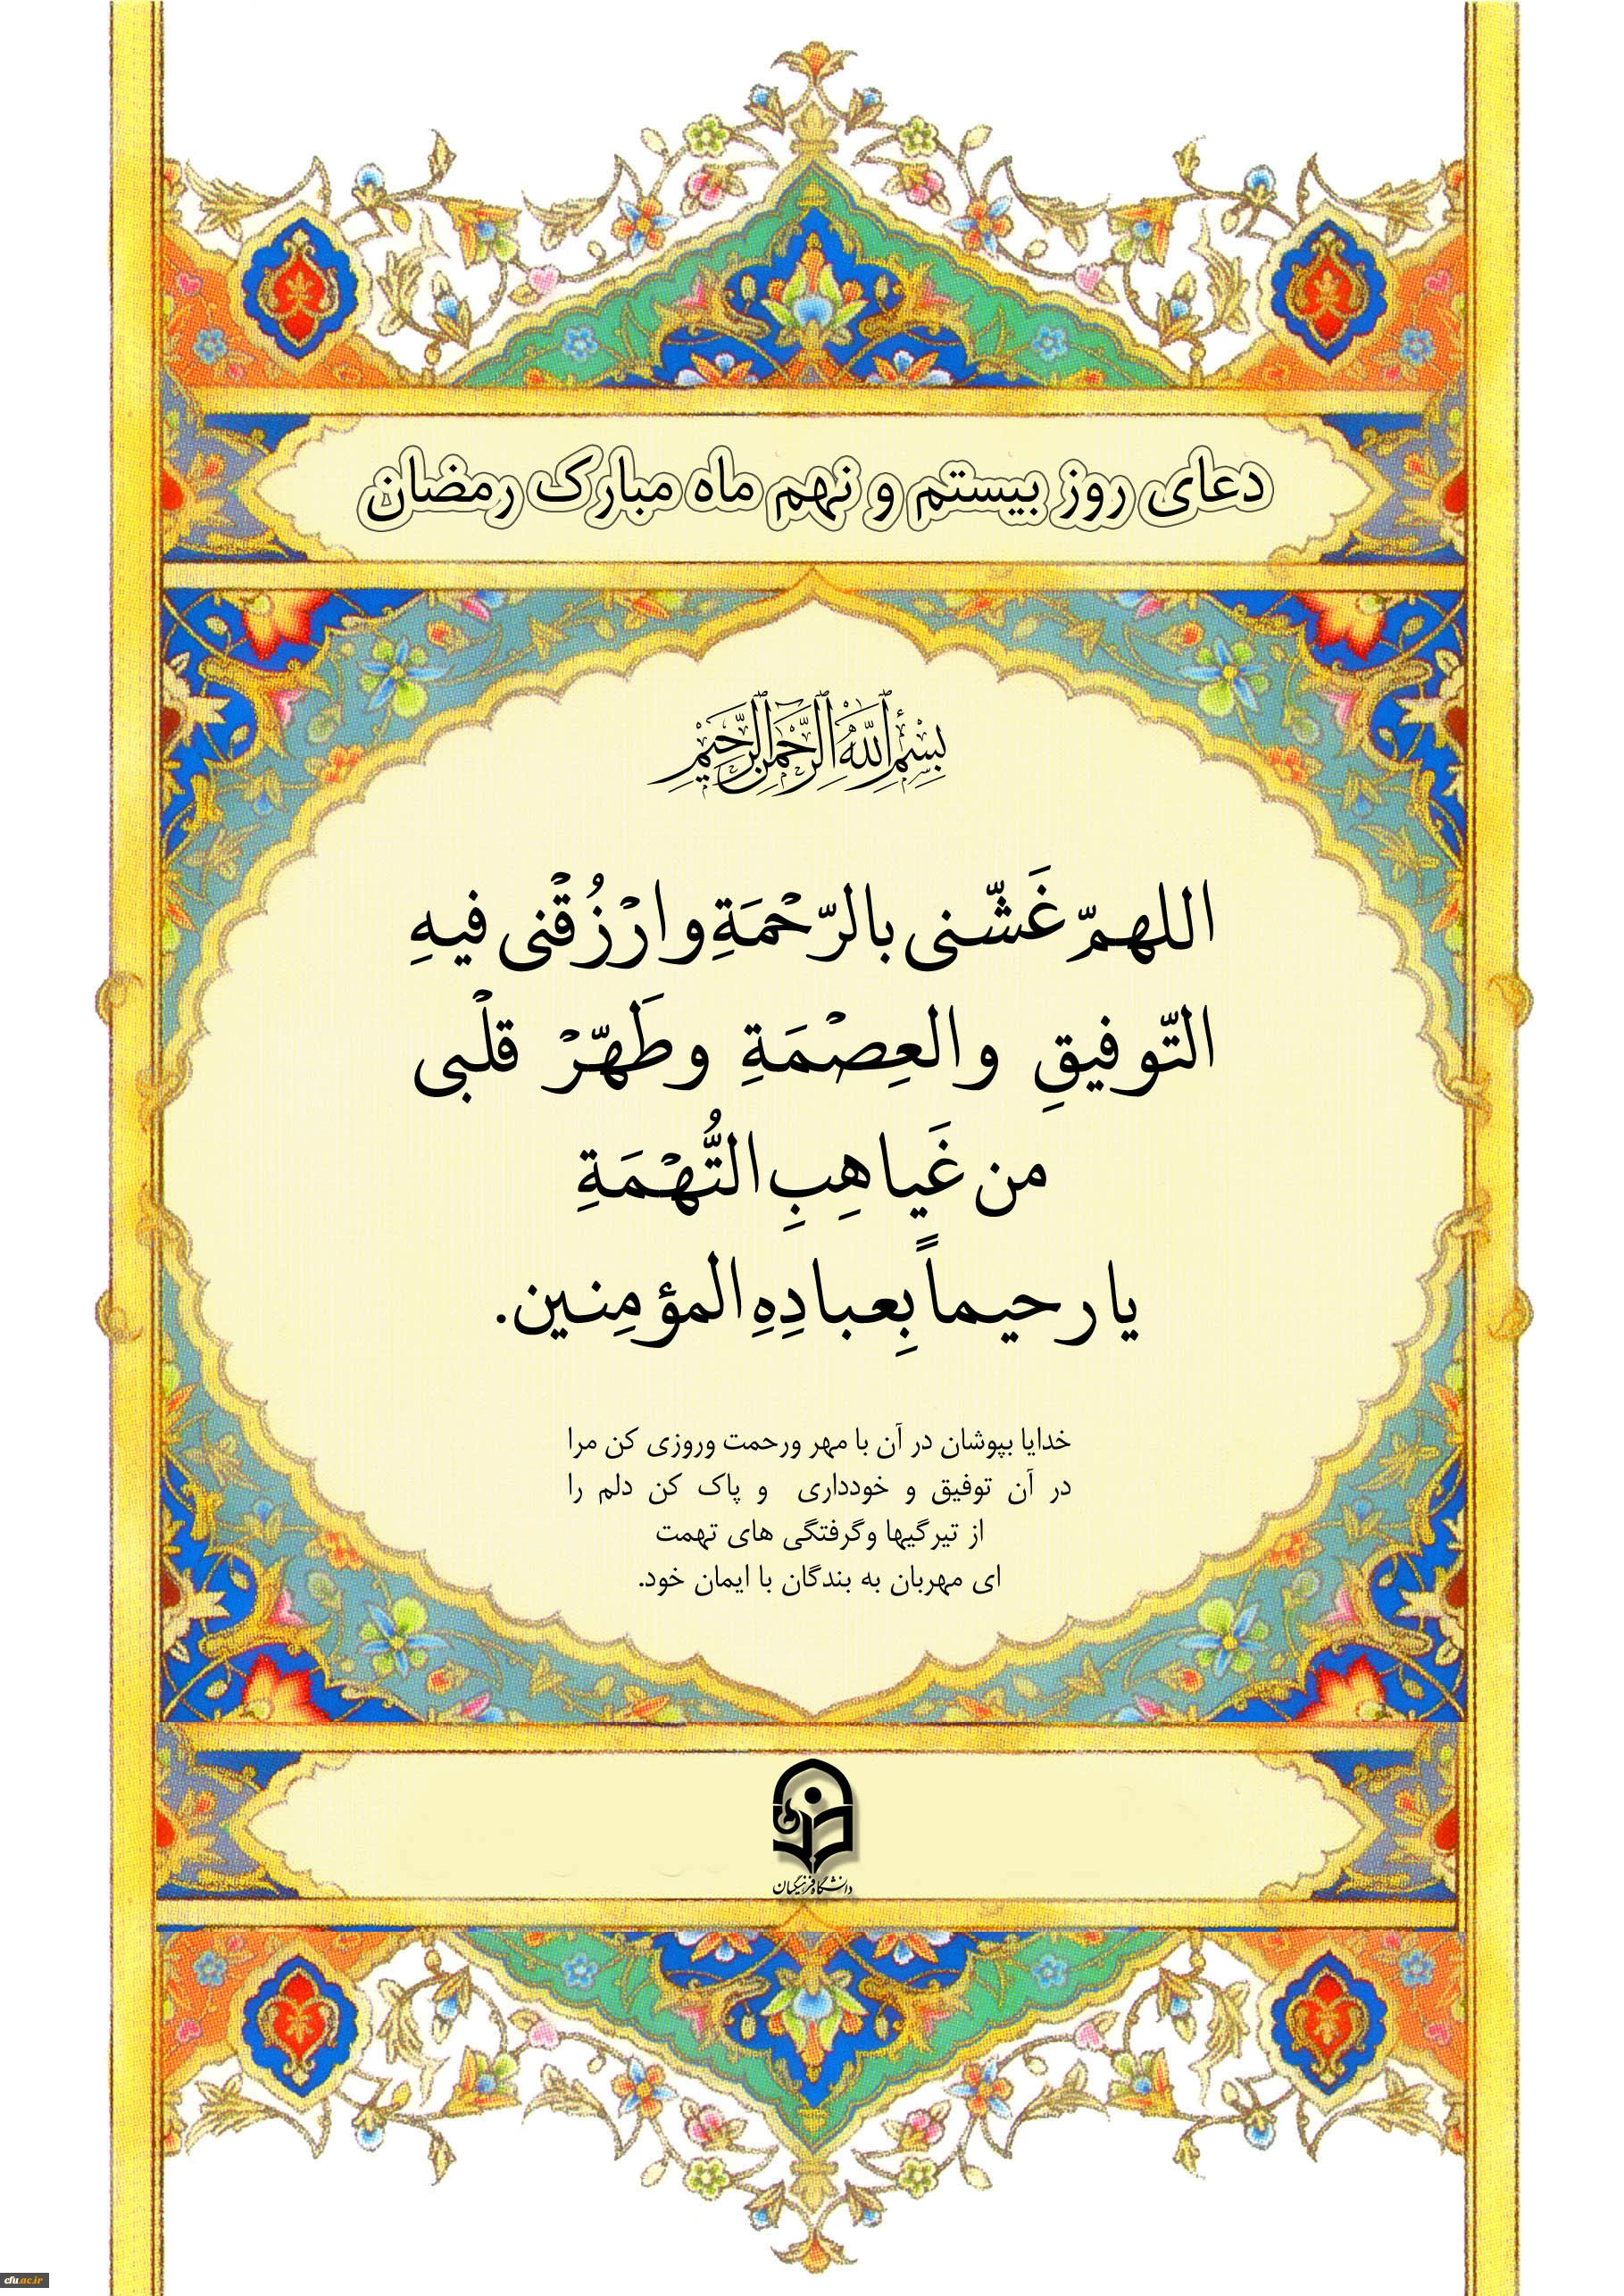 دعای روز بیستم و نهم ماه مبارک رمضان
بِسْمِ اللَّهِ الرَّحْمَنِ الرَّحِيمِ
اللهمّ غَشّنی بالرّحْمَةِ وارْزُقْنی فیهِ
التّوفیقِ والعِصْمَةِ وطَهّرْ قلْبی
من غَیاهِبِ التُّهْمَةِ
یا رحیماً بِعبادِهِ المؤمِنین.
خدایا بپوشان در آن با مهر ورحمت وروزی کن مرا
در آن توفیق و خودداری و پاک کن دلم را
از تیرگیها وگرفتگی های تهمت
ای مهربان به بندگان با ایمان خود.
دانشگاه فرهنگیان
cfu.ac.ir